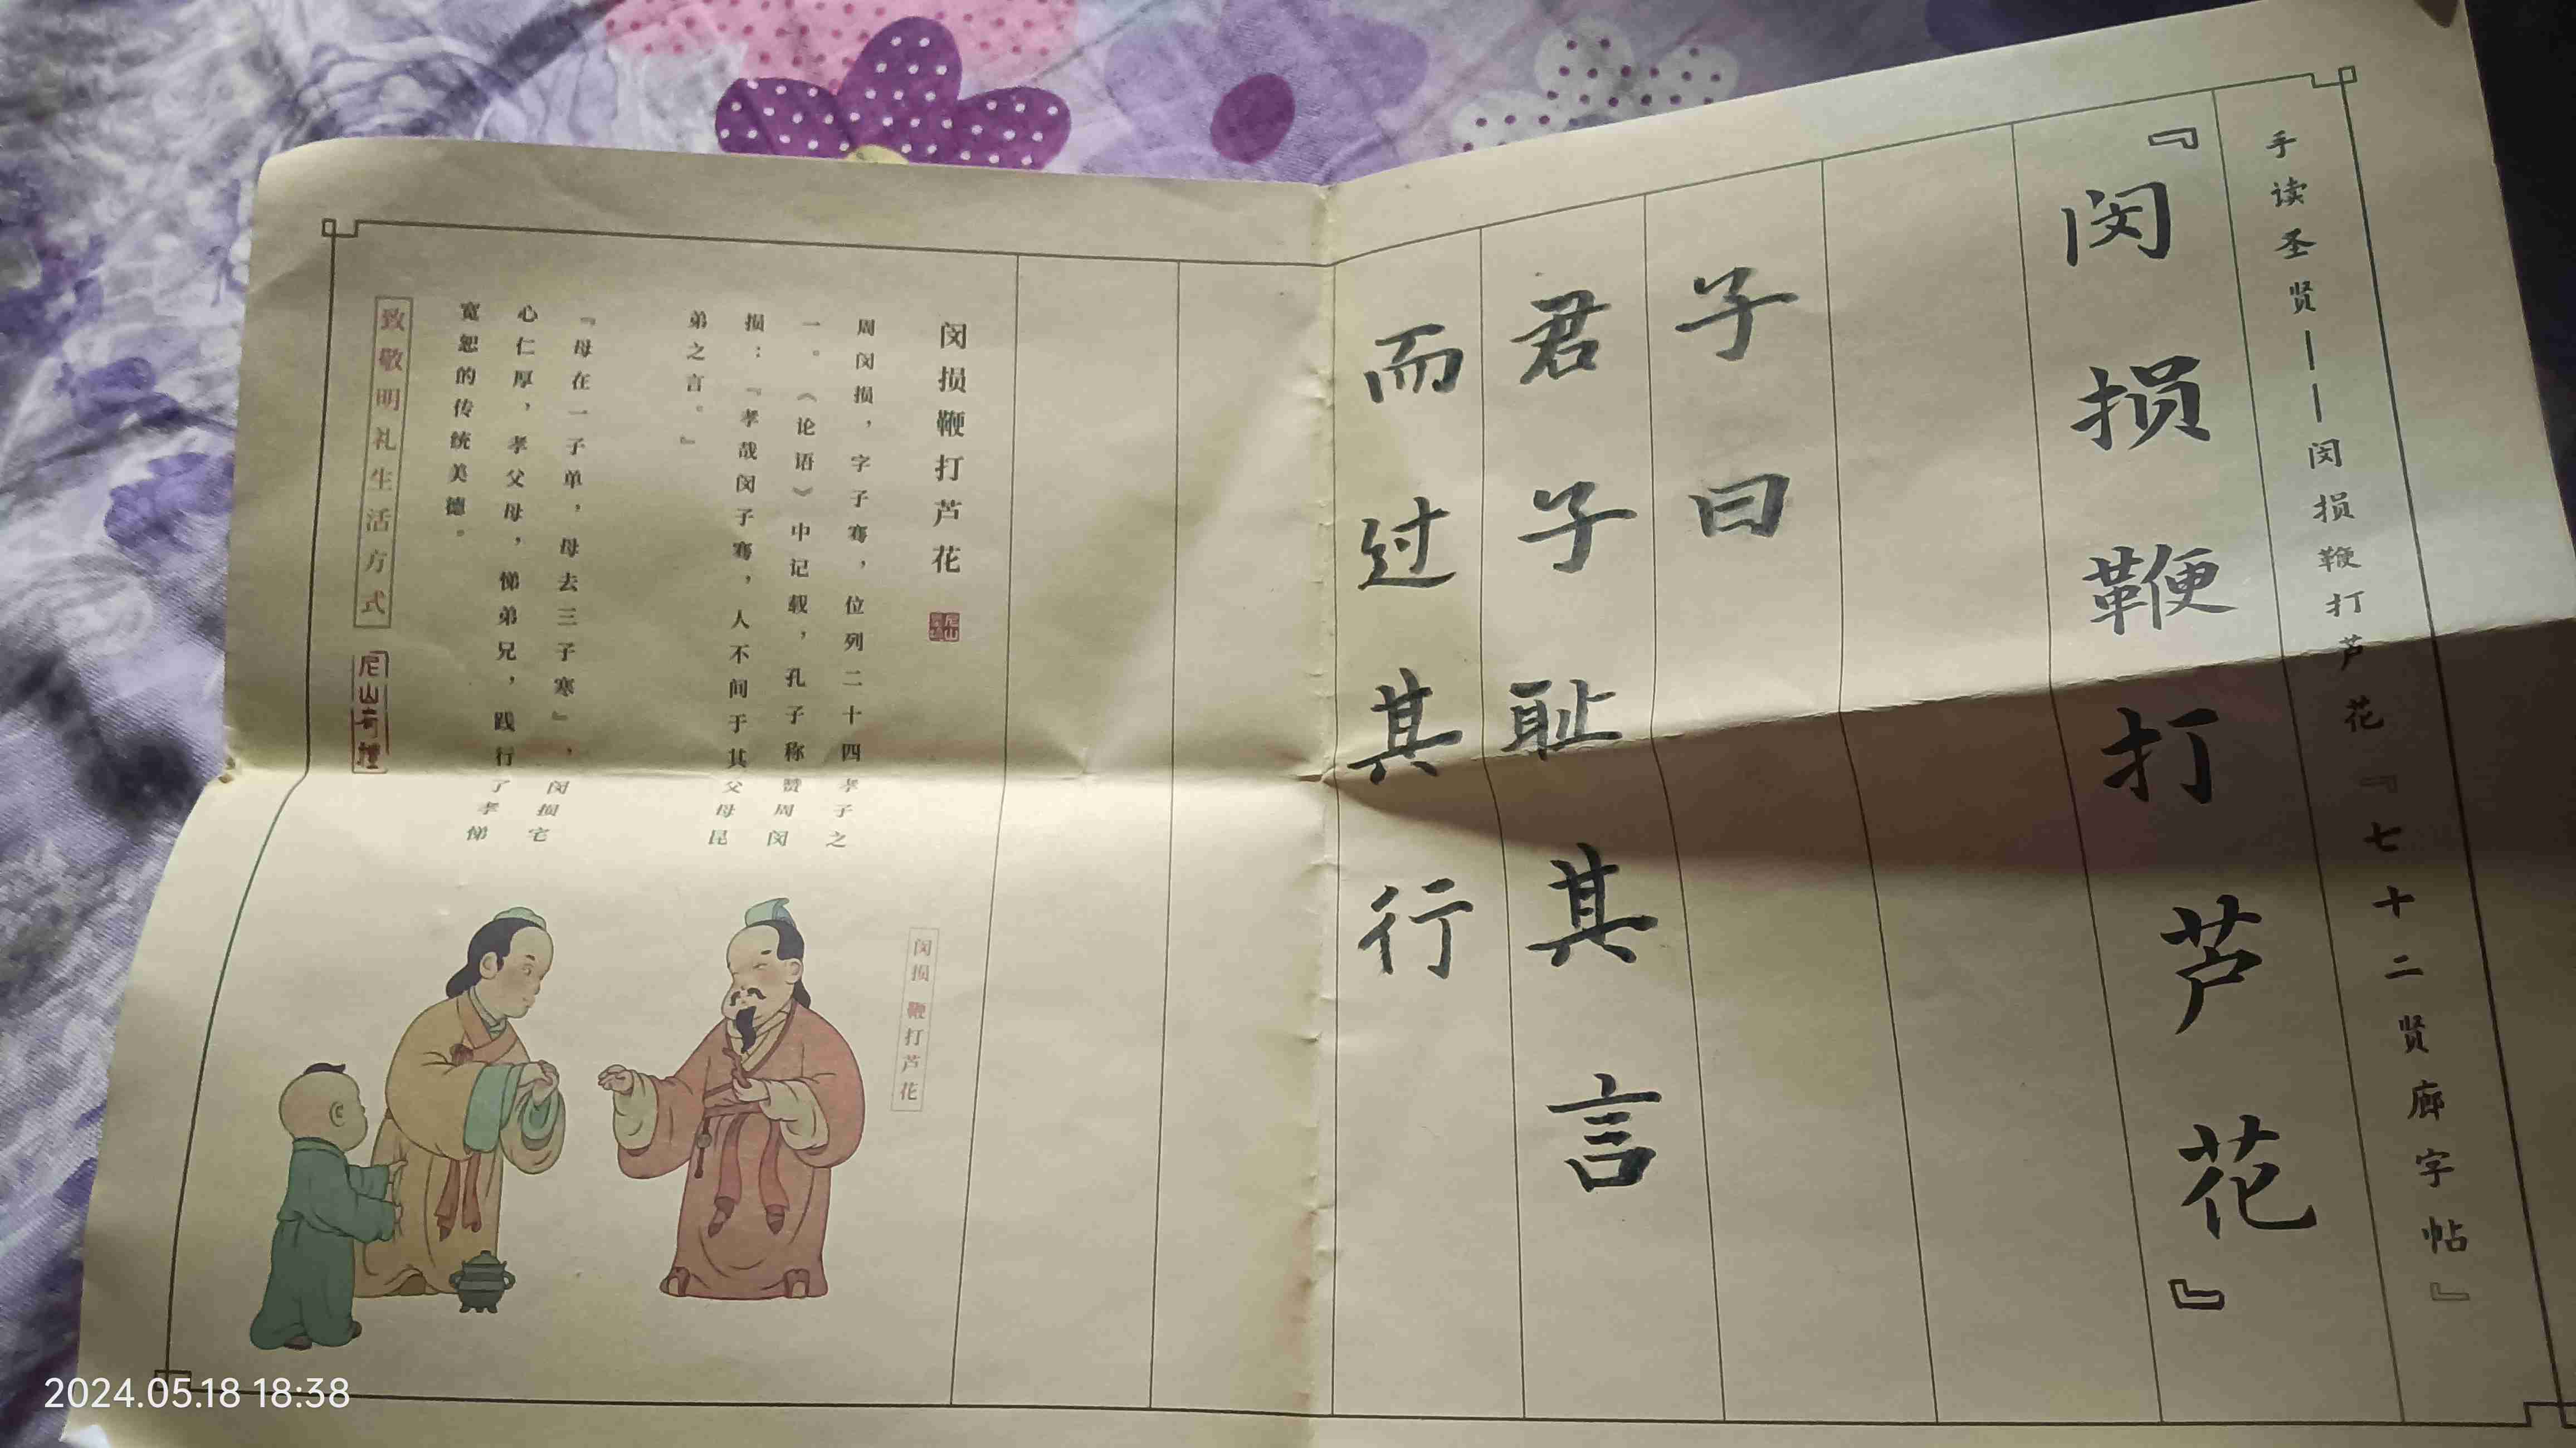 手读圣贤——闵损鞭打芦花『七十二贤廊字帖』
『闵损鞭打芦花』
子曰
君子耻其言
而过其行
闵损鞭打芦花
周闵损，字子骞，位列二十四孝子之
一。《论语》中记载，孔子称赞周闵
损：『孝哉闵子骞，人不间于其父母昆
弟之言。』
『母在一子单，母去三子寒』，闵损宅
心仁厚，孝父母，悌弟兄，践行了孝悌
宽恕的传统美德。
致敬明礼生活方式
尼山
闵损 鞭打芦花
2024.05.18 18:38